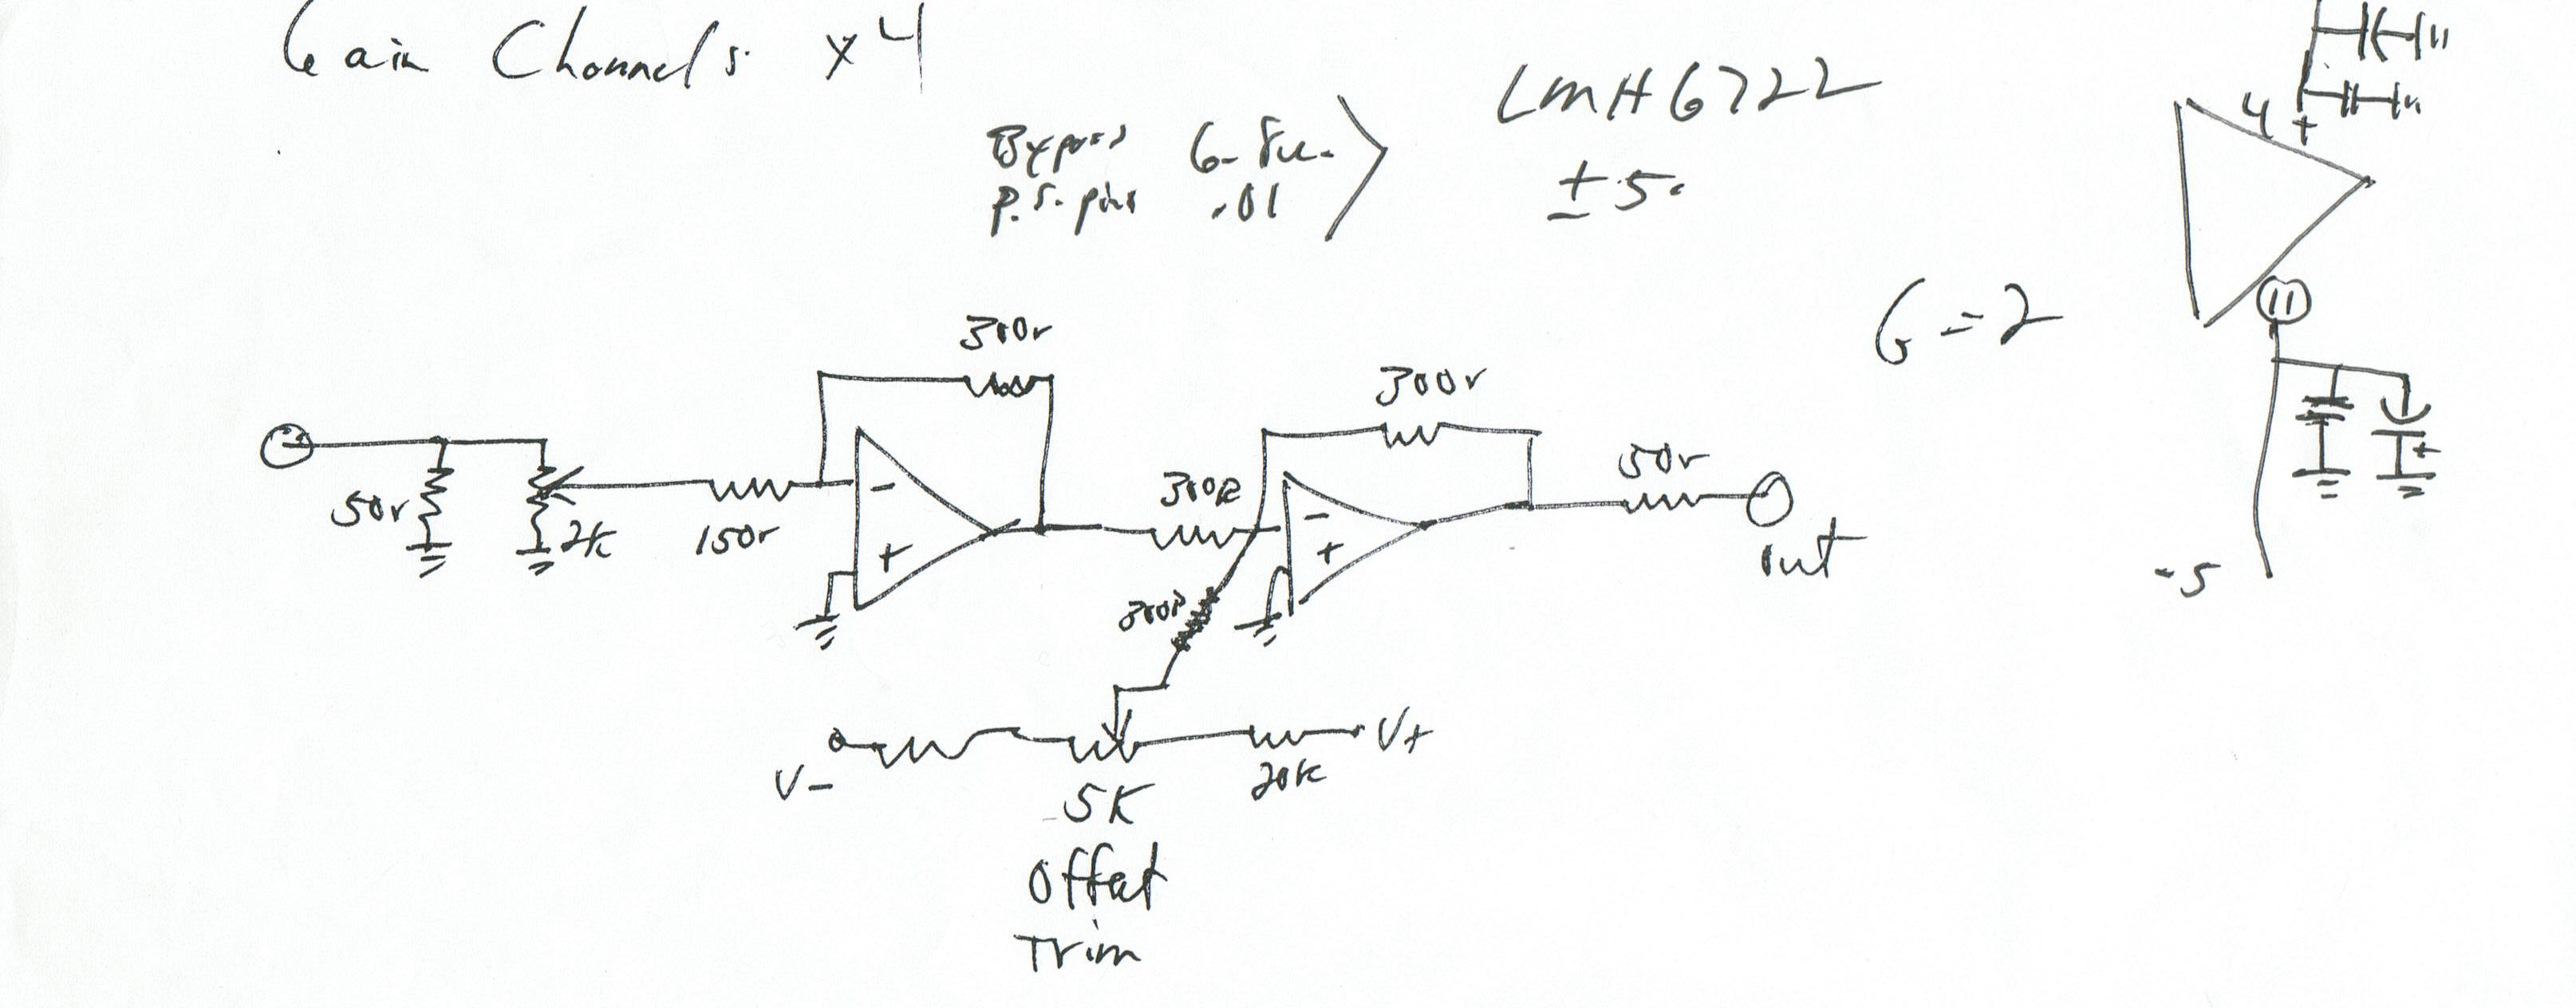 Gain Channels x4
LMH6722
± 5.
Bypass 6.8u.
P.S. pins .01
4 +
11
-5
G = 2
300r
300r
50r
2k
150r
-
+
300R
-
+
50r
out
300R
V-
5K
20K
V+
Offset
Trim